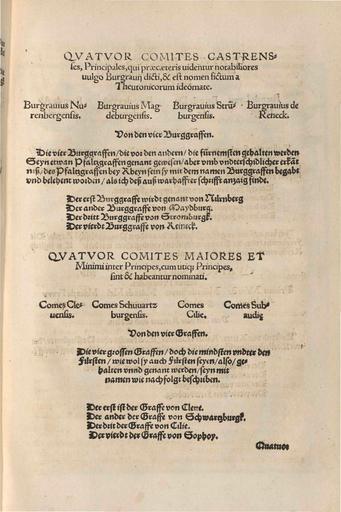 QVATVOR COMITES CASTRENS-
ses, Principales, qui præcæteris uidentur notabiliores
uulgo Burgrauij dicti, & est nomen fictum a
Theutonicorum ideomate.
Burgrauius Nu- Burgrauius Mag Burgrauius Strŭ- Burgrauius de
renbergensis. deburgensis. burgensis. Reneck.
Von den vier Burggraffen.
Die vier Burggraffen / die vor den andern / die fürnemsten gehalten werden
Seyn etwan Pfaltzgraffen genant gewesen / aber vmb vndterschidlicher erkāt
niß / des Pfaltzgraffen bey Rheyn sein sy mit dem namen Burggraffen begabt
vnd belehent worden / als ich deß auß warhaffter schrifft anzaig finde.
Der erst Burggraffe wirdt genant von Nürnberg
Der ander Burggraffe von Maydburg.
Der dritt Burggraffe von Stromburgk.
Der vierdt Burggraffe von Reineck.
QVATVOR COMITES MAIORES ET
Minimi inter Principes, cum utiqȝ Principes,
sint & habeantur nominati.
Comes Cle- Comes Schuuartz Comes Comes Sub-
uensis. burgensis. Cilie. audię
Von den vier Graffen.
Die vier grossen Graffen / doch die mindsten vndter den
Fürsten / wie wol sy auch Fürsten seyen / also / ge-
halten vnnd genant werden / seyn mit
namen wie nachfolgt beschriben.
Der erst ist der Graffe von Cleue.
Der ander der Graffe von Schwartzburgk.
Der drit der Graffe von Cilie.
Der vierdt der Graffe von Sophoy.
Quatuor